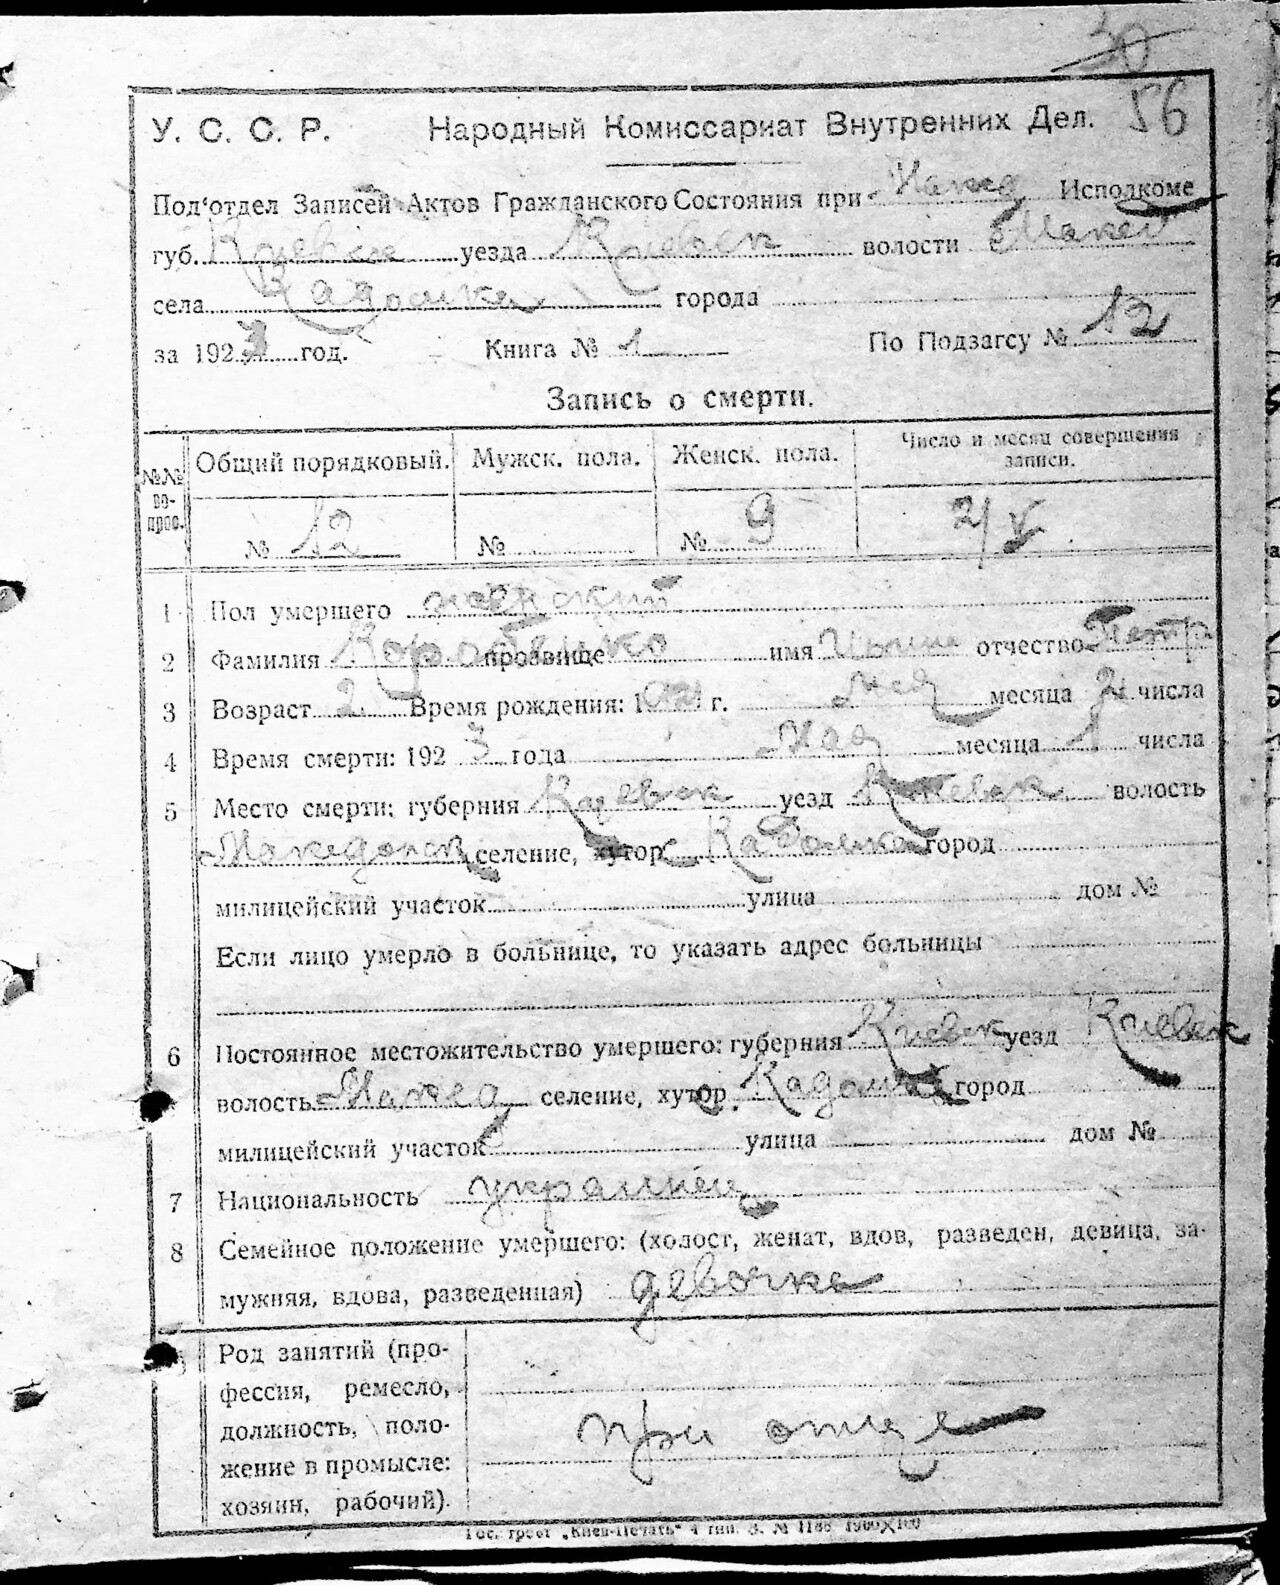 30
56
У. С. С. Р. Народный Комиссариат Внутренних Дел.
Под‘отдел Записей Актов Гражданского Состояния при Макед Исполкоме
губ. Киевск уезда Киевск волости Макед
села Кадомка города
за 1923 год. Книга № 1 По Подзагсу № 12
Запись о смерти.
№№ во-прос. Общий порядковый. Мужск. пола. Женск. пола. Число и месяц совершения записи.
№ 12 № № 9 2/V
1 Пол умершего женский
2 Фамилия Коробенко прозвище имя отчество Петр
3 Возраст 2 Время рождения: 1921 г. Мая месяца 2 числа
4 Время смерти: 1923 года Мая месяца 1 числа
5 Место смерти: губерния Киевск уезд Киевск волость
Македонск селение, хутор Кадомка город
милицейский участок улица дом №
Если лицо умерло в больнице, то указать адрес больницы
6 Постоянное местожительство умершего: губерния Киевск уезд Киевск
волость Макед селение, хутор Кадомка город
милицейский участок улица дом №
7 Национальность
8 Семейное положение умершего: (холост, женат, вдов, разведен, девица, за-
мужняя, вдова, разведенная) девочка
Род занятий (про-
фессия, ремесло,
должность, поло- при отце
жение в промысле:
хозяин, рабочий).
Гос. трест „Киев-Печать“ 4 тип. З. № 1186 1000X100